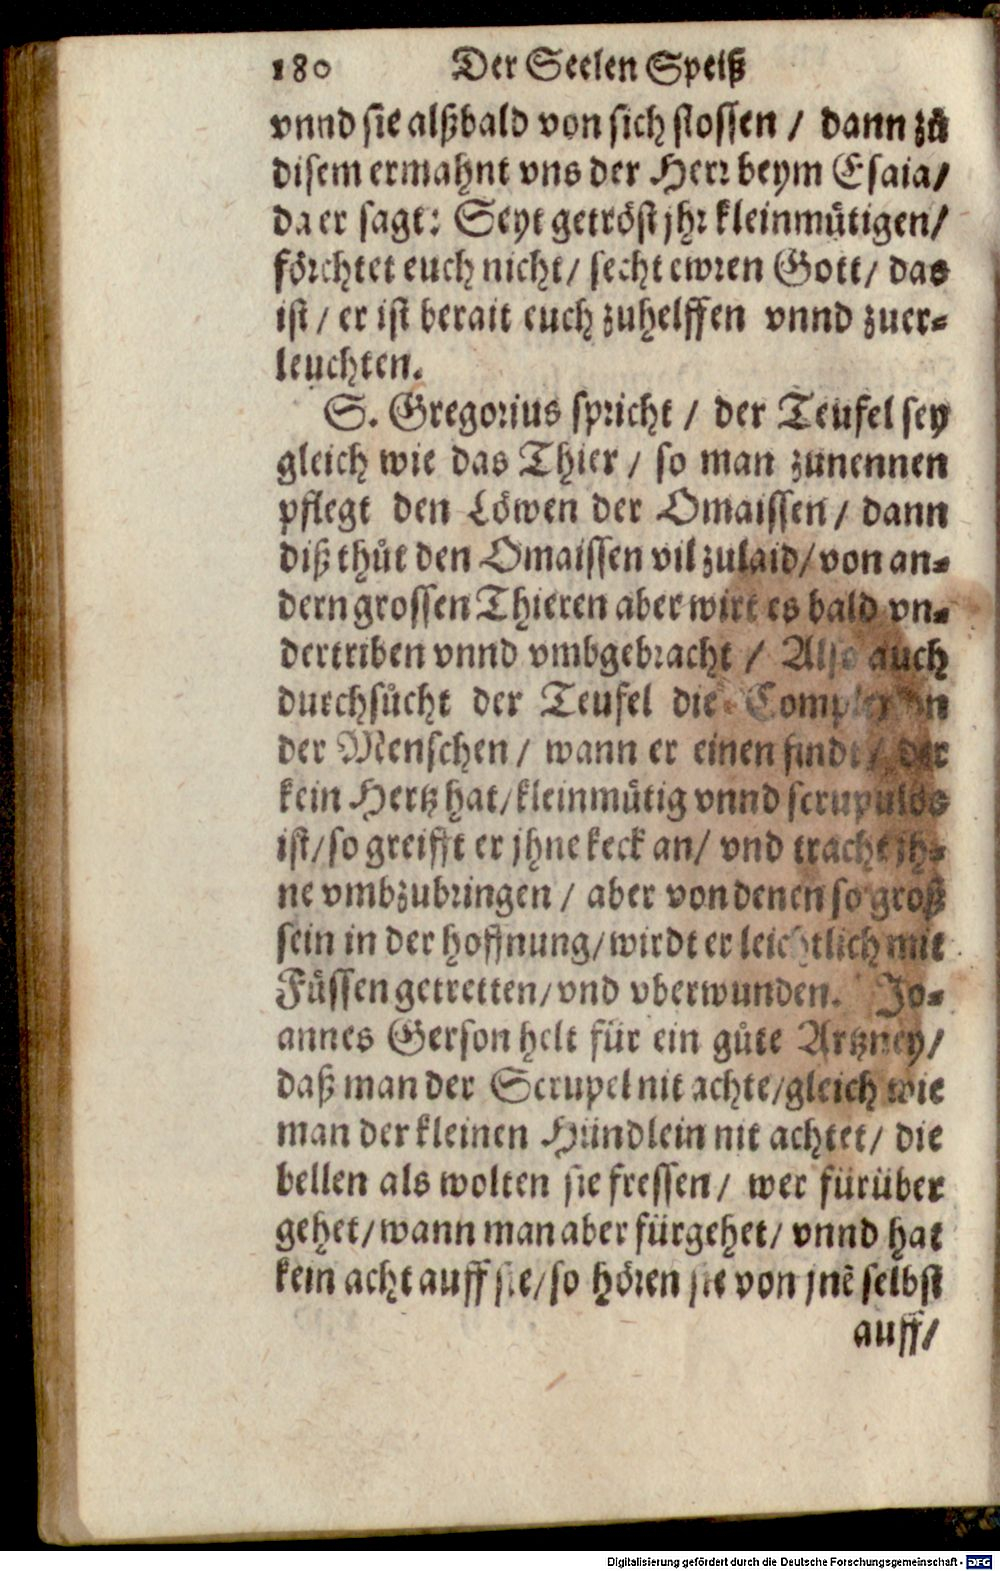 180 Der Seelen Speiß
vnnd sie alßbald von sich stossen / dann zů
disem ermahnt vns der Herr beym Esaia/
da er sagt: Seyt getröst jhr kleinmütigen/
förchtet euch nicht/ secht ewren Gott/ das
ist / er ist berait euch zuhelffen vnnd zuer-
leuchten.
S. Gregorius spricht / der Teufel sey
gleich wie das Thier / so man zunennen
pflegt den Löwen der Omaissen / dann
diß thůt den Omaissen vil zulaid/ von an-
dern grossen Thieren aber wirt es bald vn-
dertriben vnnd vmbgebracht / Also auch
durchsůcht der Teufel die Complexion
der Menschen / wann er einen findt / der
kein Hertz hat/kleinmütig vnnd scrupulos
ist/so greifft er jhne keck an/ vnd tracht jh-
ne vmbzubringen / aber von denen so groß
sein in der hoffnung/wirdt er leichtlich mit
Füssen getretten/vnd vberwunden. Jo-
annes Gerson helt für ein gůte Artzney/
daß man der Scrupel nit achte/gleich wie
man der kleinen Hündlein nit achtet/ die
bellen als wolten sie fressen/ wer fürüber
gehet/wann man aber fürgehet/ vnnd hat
kein acht auff sie/so hören sie von jnẽ selbst
auff/
Digitalisierung gefördert durch die Deutsche Forschungsgemeinschaft - DFG